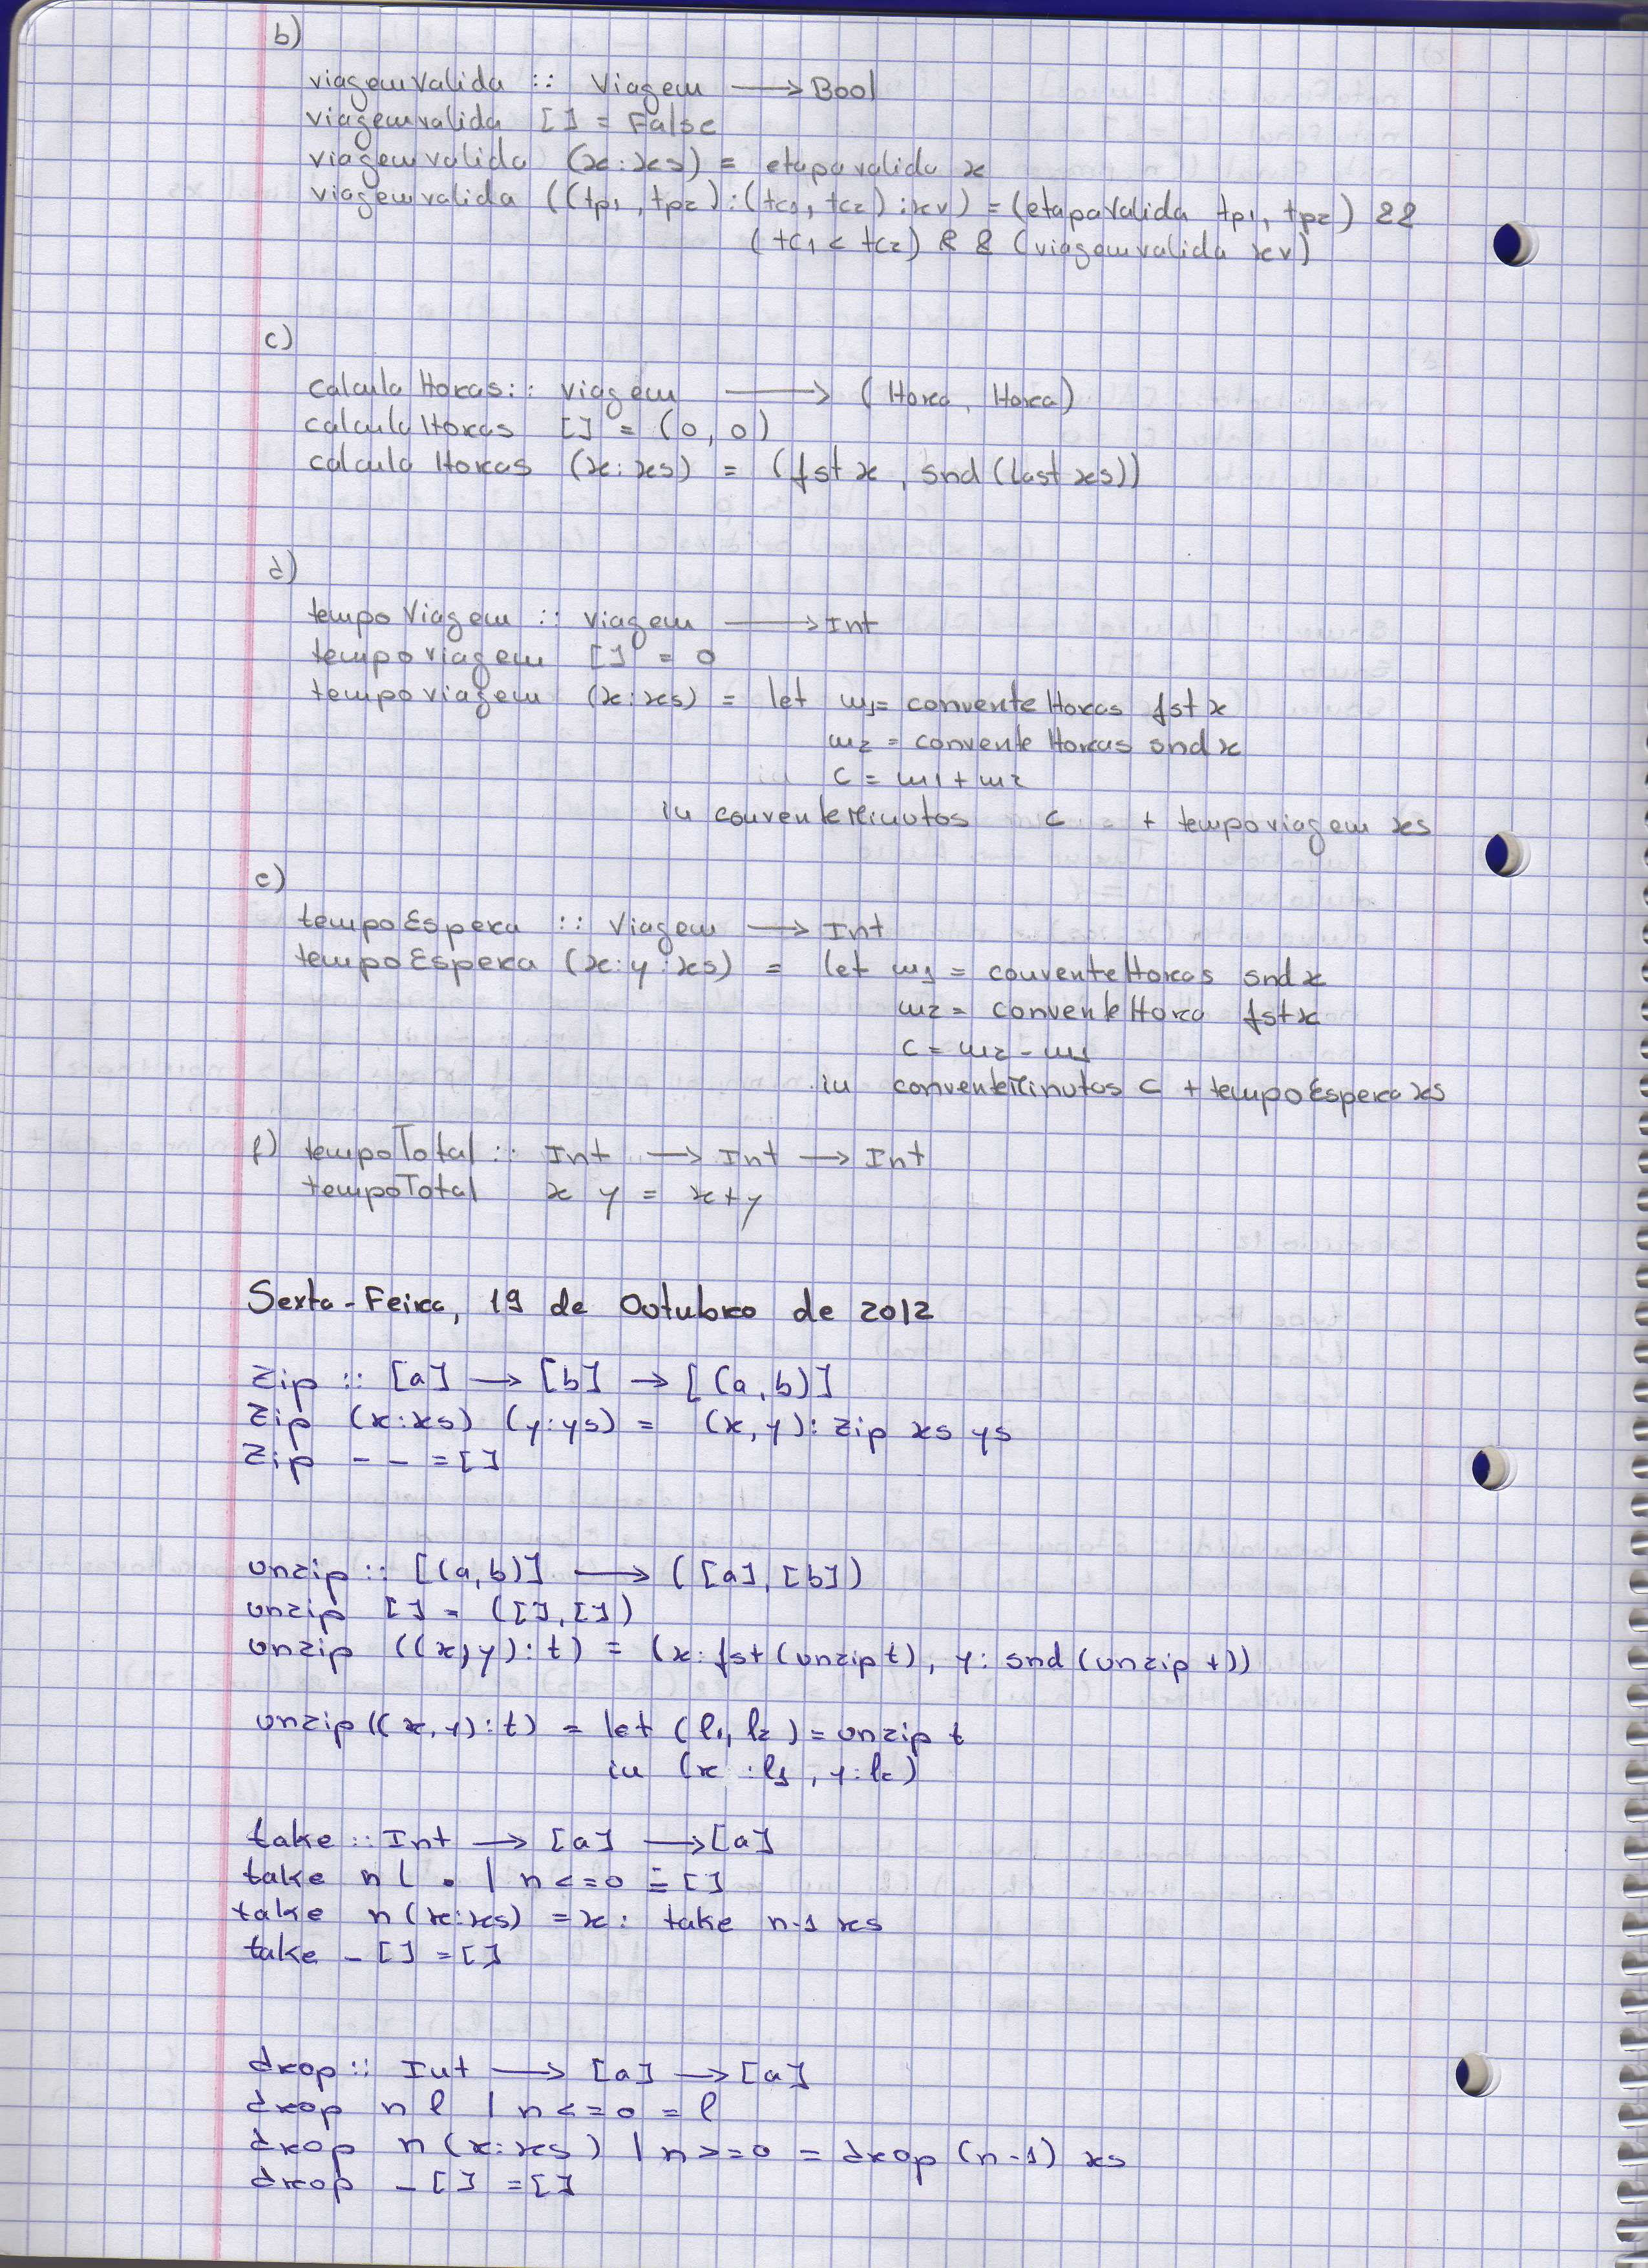 b)
viagemvalida :: Viagem ⟶ Bool
viagemvalida [] = False
viagemvalida (x:xs) = etapavalida x
viagemvalida ((tp1, tp2):(tc1, tc2):xv) = (etapaValida tp1, tp2) &&
(tc1 < tc2) && (viagemvalida xv)
c)
calculaHoras:: viagem ⟶ (Hora, Hora)
calculaHoras [] = (0,0)
calculaHoras (x:xs) = (fst x, snd (last xs))
d)
tempoViagem :: viagem ⟶ Int
tempoviagem [] = 0
tempoviagem (x:xs) = let m1= converteHoras fst x
m2 = converteHoras snd x
c = m1+m2
in converteMinutos c + tempoviagem xs
e)
tempoEspera :: Viagem ⟶ Int
tempoEspera (x:y:xs) = let m1 = converteHoras snd x
m2 = converteHora fst x
c = m2 - m1
in converteMinutos c + tempoEspera xs
f) tempoTotal :: Int ⟶ Int ⟶ Int
tempoTotal x y = x+y
Sexta-Feira, 19 de Outubro de 2012
zip :: [a] ⟶ [b] → [(a,b)]
zip (x:xs) (y:ys) = (x,y): zip xs ys
zip _ _ = []
unzip :: [(a,b)] ⟶ ([a],[b])
unzip [] = ([],[])
unzip ((x,y):t) = (x: fst (unzip t), y: snd (unzip t))
unzip ((x,y):t) = let (l1, l2) = unzip t
in (x:l1, y:l2)
take :: Int ⟶ [a] ⟶ [a]
take n l | n<=0 = []
take n (x:xs) = x: take n-1 xs
take _ [] = []
drop :: Int ⟶ [a] ⟶ [a]
drop n l | n<=0 = l
drop n (x:xs) | n>=0 = drop (n-1) xs
drop _ [] = []